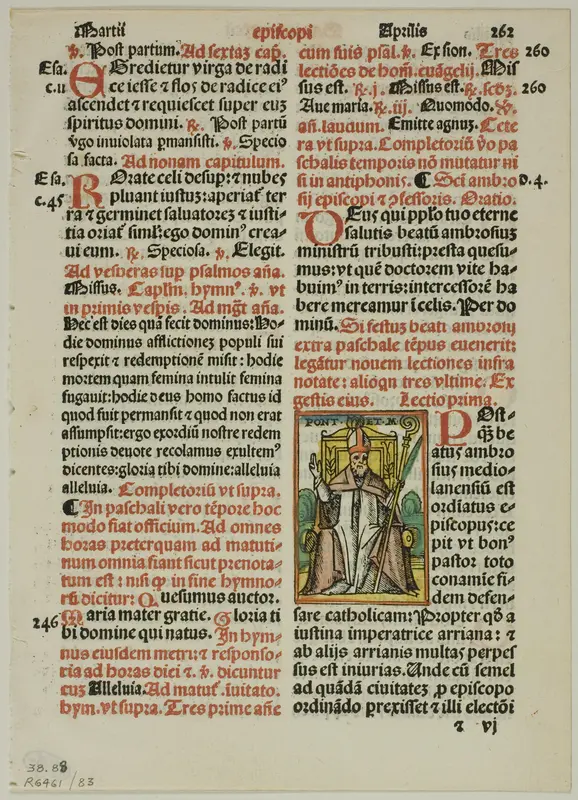 Martii
episcopi
Aprilis
262
℣. Post partum. Ad sextaȝ cap̄.
Esa.
c.11
EGredietur virga de radi
ce iesse ⁊ flos de radice eiꝰ
ascendet ⁊ requiescet super euȝ
spiritus domini. ℟. Post partū
v̄go inuiolata p̱mansisti. ℣. Specio
sa facta. Ad nonam capitulum.
Esa.
c.45
ROrate celi desuꝑ: ⁊ nubes
pluant iustuȝ: aperiat̄ ter
ra ⁊ germinet saluatoreȝ ⁊ iusti-
tia oriat̄ siml̄: ego dominꝰ crea-
ui eum. ℟. Speciosa. ℣. Elegit.
Ad vesperas sup psalmos an̄a.
Missus. Capl̄m, hymnꝰ. ℣. vt
in primis vesp̄is. Ad mg̃t an̄a.
Hec est dies quā fecit dominus: Ho-
die dominus afflictioneȝ populi sui
respexit ⁊ redemptionē misit: hodie
mortem quam femina intulit femina
fugauit: hodie deus homo factus id
quod fuit permansit ⁊ quod non erat
assumpsit: ergo exordiū nostre redem
ptionis deuote recolamus exultemꝰ
dicentes: gloria tibi domine: alleluia
alleluia. Completoriū vt supra.
¶ In paschali vero tēpore hoc
modo fiat officium. Ad omnes
horas preterquam ad matuti-
num omnia fiant sicut prenota-
tum est: nisi ꝙ in fine hymno-
rū dicitur: Quesumus auctor.
246
Maria mater gratie. Gloria ti
bi domine qui natus. In hym-
nus eiusdem metri: ⁊ responso-
ria ad horas diei ⁊ ℣. dicuntur
cuȝ Alleluia. Ad matut̄. iuitato.
hym. vt supra. Tres prime an̄e
cum suis psal. ℣. Ex sion. Tres
260
lectiōes de hom̄. euāgelij. Mis
sus est. ℟. j. Missus est. ℟. scd̄ȝ.
260
Aue maria. ℟. iij. Quomodo. ℣.
an̄. laudum. Emitte agnuȝ. Cete
ra vt supra. Completoriū v̄o pa
schalis temporis nō mutatur ni
si in antiphonis. ¶ Sc̄i ambro
D.4.
sij episcopi ⁊ ꝯfessoris. Oratio.
DEus qui pp̄lo tuo eterne
salutis beatū ambrosiuȝ
ministrū tribuisti: presta quesu-
mus: vt quē doctorem vite ha-
buimꝰ in terris: intercessorē ha
bere mereamur ī celis. Per do
minū. Si festuȝ beati ambrosij
extra paschale tēpus euenerit:
legāt̄ur nouem lectiones infra
notate: alioqn̄ tres vltime. Ex
gestis eius. Lectio prima.
PONT ET M
POst-
q̄ȝ be
atus ambro
sius medio-
lanensiū est
ordiatus e-
piscopus: ce
pit vt bonꝰ
pastor toto
conamīe fi-
dem defen-
sare catholicam: Propter qd̄ a
iustina imperatrice arriana: ⁊
ab alijs arrianis multas perpes
sus est iniurias. Unde cū semel
ad quādā ciuitateȝ ꝓ episcopo
ordinādo ꝑrexisset ⁊ illi electōi
⁊ vj
38.88
R6461/83